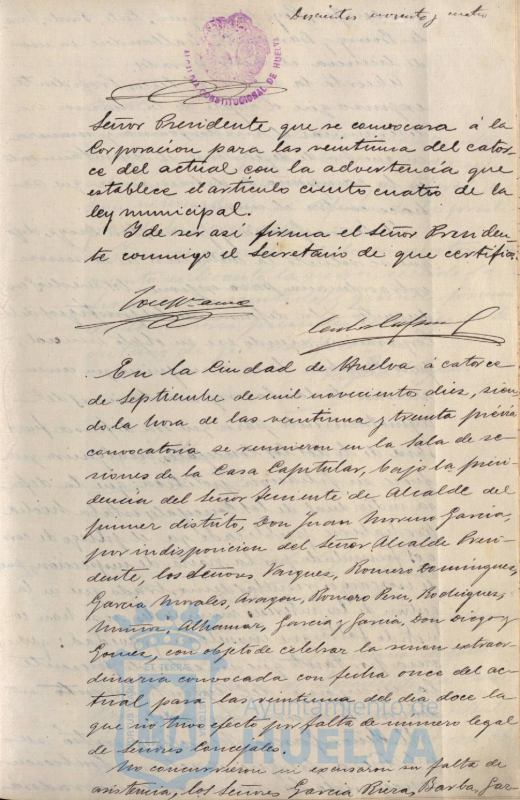 Doscientos noventa y cuatro
ALCALDIA CONSTITUCIONAL DE HUELVA
Señor Presidente que se convocara á la
Corporacion para las veintiuna del cator-
ce del actual con la advertencia que
establece el artículo ciento cuatro de la
ley municipal.
Y de ser así firma el Señor Presiden-
te conmigo el Secretario de que certifico.
En la Ciudad de Huelva á catorce
de Septiembre de mil novecientos diez, sien-
do la hora de las veintiuna y treinta previa
convocatoria se reunieron en la Sala de se-
siones de la Casa Capitular, bajo la presi-
dencia del Señor Teniente de Alcalde del
primer distrito, Don Juan Moreno García,
por indisposicion del Señor Alcalde Presi-
dente, los Señores Vazques, Romero Dominguez,
Garcia Morales, Aragon, Romero Perez, Rodriguez,
Muñoz, Alhamar, Garcia y Garcia, Don Diego y
Gomez, con objeto de celebrar la sesion extraor-
dinaria convocada con fecha once del ac-
tual para las veintiuna del dia doce la
que no tuvo efecto por falta de numero legal
de señores concejales.
No concurrieron ni excusaron su falta de
asistencia, los Señores Garcia Riera, Barba, Gar-
EL TERRAE
Ayuntamiento de
HUELVA